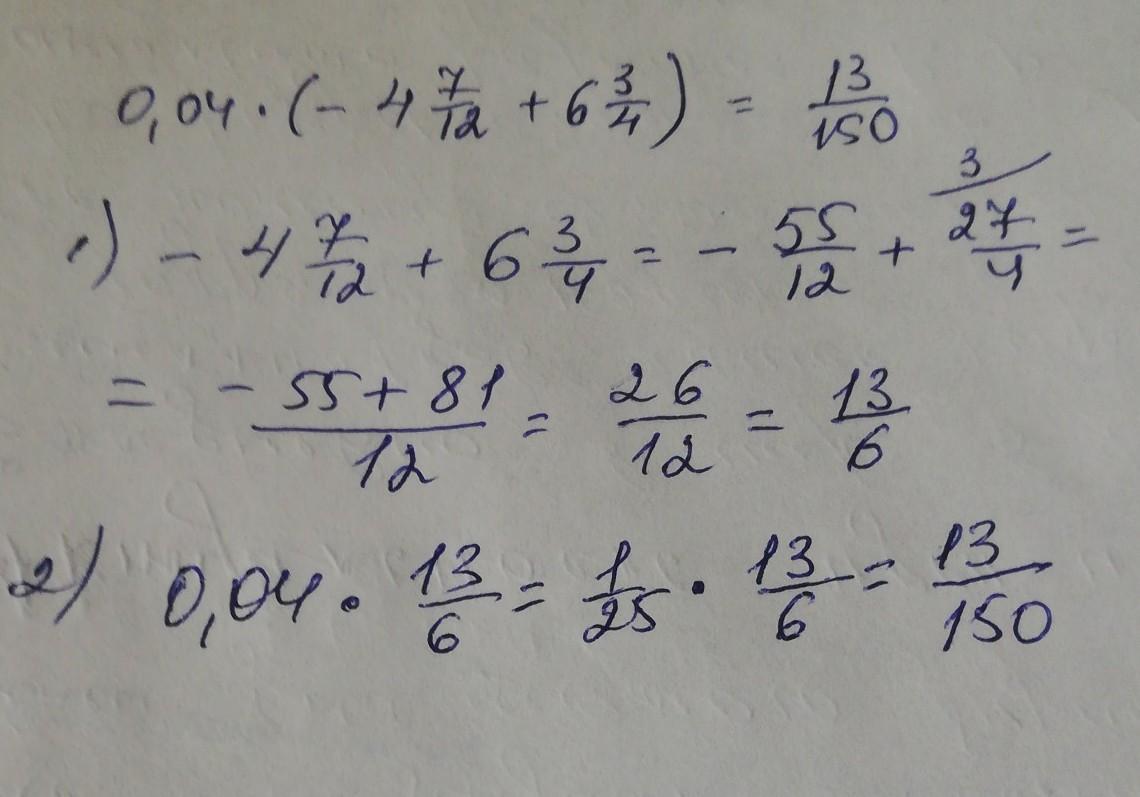 0,04 · (- 4 7/12 + 6 3/4) = 13/150
1) - 4 7/12 + 6 3/4 = - 55/12 + 27/4 (3 =
= (- 55 + 81)/12 = 26/12 = 13/6
2) 0,04 · 13/6 = 1/25 · 13/6 = 13/150